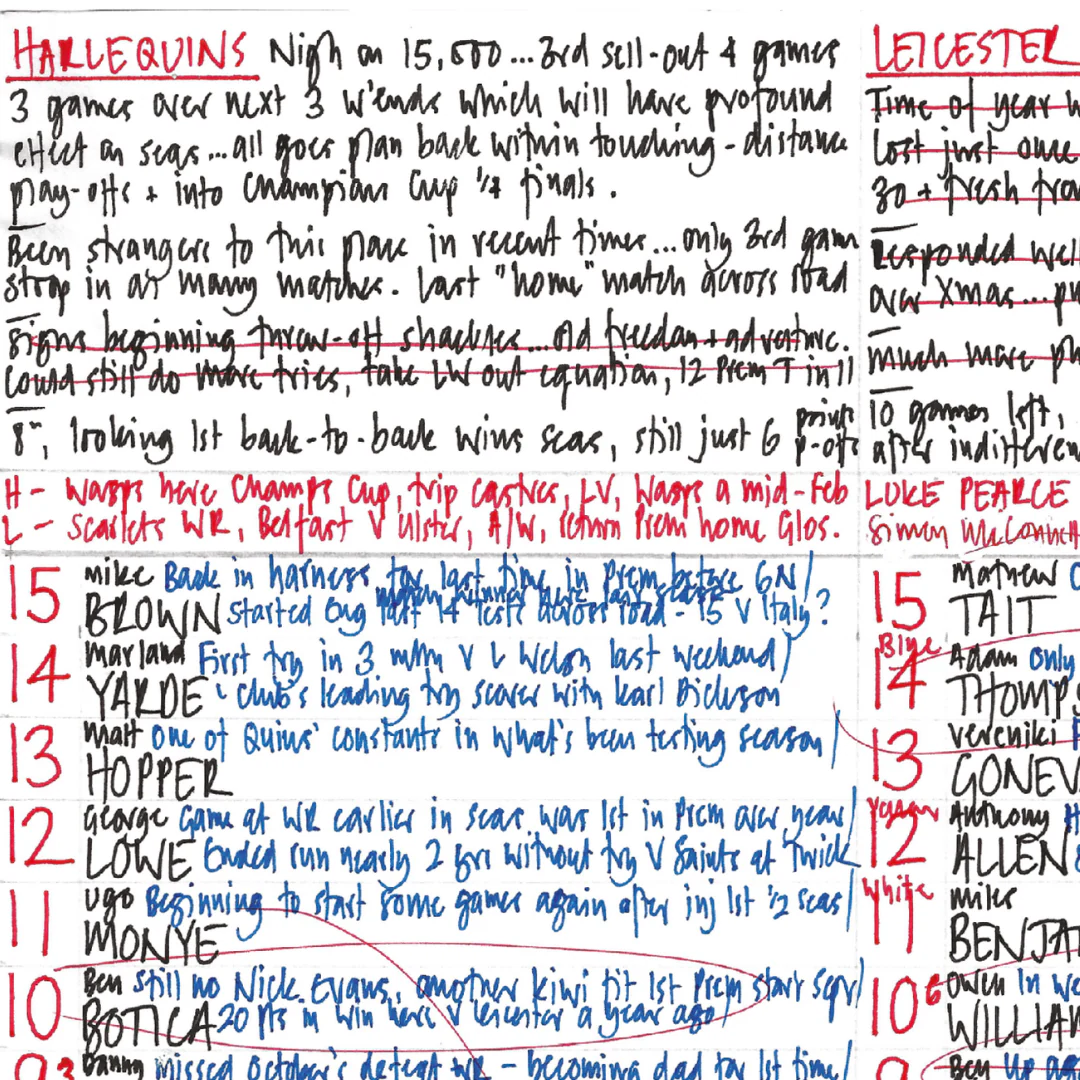 HARLEQUINS Nigh on 15,000...3rd sell-out 4 games
3 games over next 3 w'ends which will have profound
effect on seas...all goes plan back within touching-distance
play-offs + into Champions Cup 1/4 finals.
Been strangers to this place in recent times...only 3rd game
stoop in as many matches. Last "home" match across road
Signs beginning throw-off shackles...old freedom+adventure.
Could still do more tries, take LW out equation, 12 Prem T in 11
8th, looking 1st back-to-back wins seas, still just 6 points p-offs
H- Wasps here Champs Cup, trip Castres, LV, Wasps a mid-Feb
L - Scarlets WR, Belfast V Ulster, A/W, return Prem home Glos.
15 Mike Back in harness for last time in Prem before 6N/
BROWN started Eng last 14 Tests across road - 15 v Italy?
14 Marland First try in 3 mths V L Welsh last weekend/
YARDE club's leading try scorer with Karl Dickson
13 Matt one of Quins' constants in what's been testing season/
HOPPER
12 George Game at WR earlier in seas was 1st in Prem over year/
LOWE Ended run nearly 2 yrs without try V Saints at Twick
11 Ugo Beginning to start some games again after inj 1st 1/2 seas/
MONYE
10 Ben Still no Nick Evans, another kiwi fit 1st Prem start Sep/
BOTICA 20 pts in win here v Leicester a year ago/
Danny missed October's defeat WR - becoming dad for 1st time/
LEICESTER
Time of year
Lost just once
30 + fresh
Responded well
over Xmas...
much more
10 games left,
after
LUKE PEARCE
Simon
15 Mathew
TAIT
Blue
14 Adam only
THOMPS
13 Vereniki
GONEV
12 Anthony
ALLEN
White
11 Miles
BENJA
10 6 Owen In
WILLIAM
Ben Up